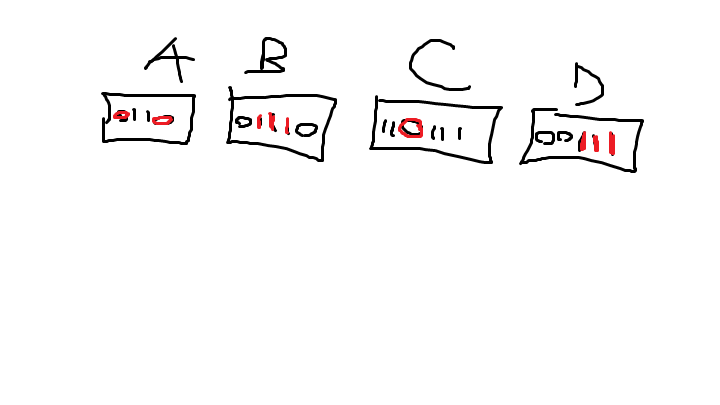 A B C D
0110 01110 110111 00111